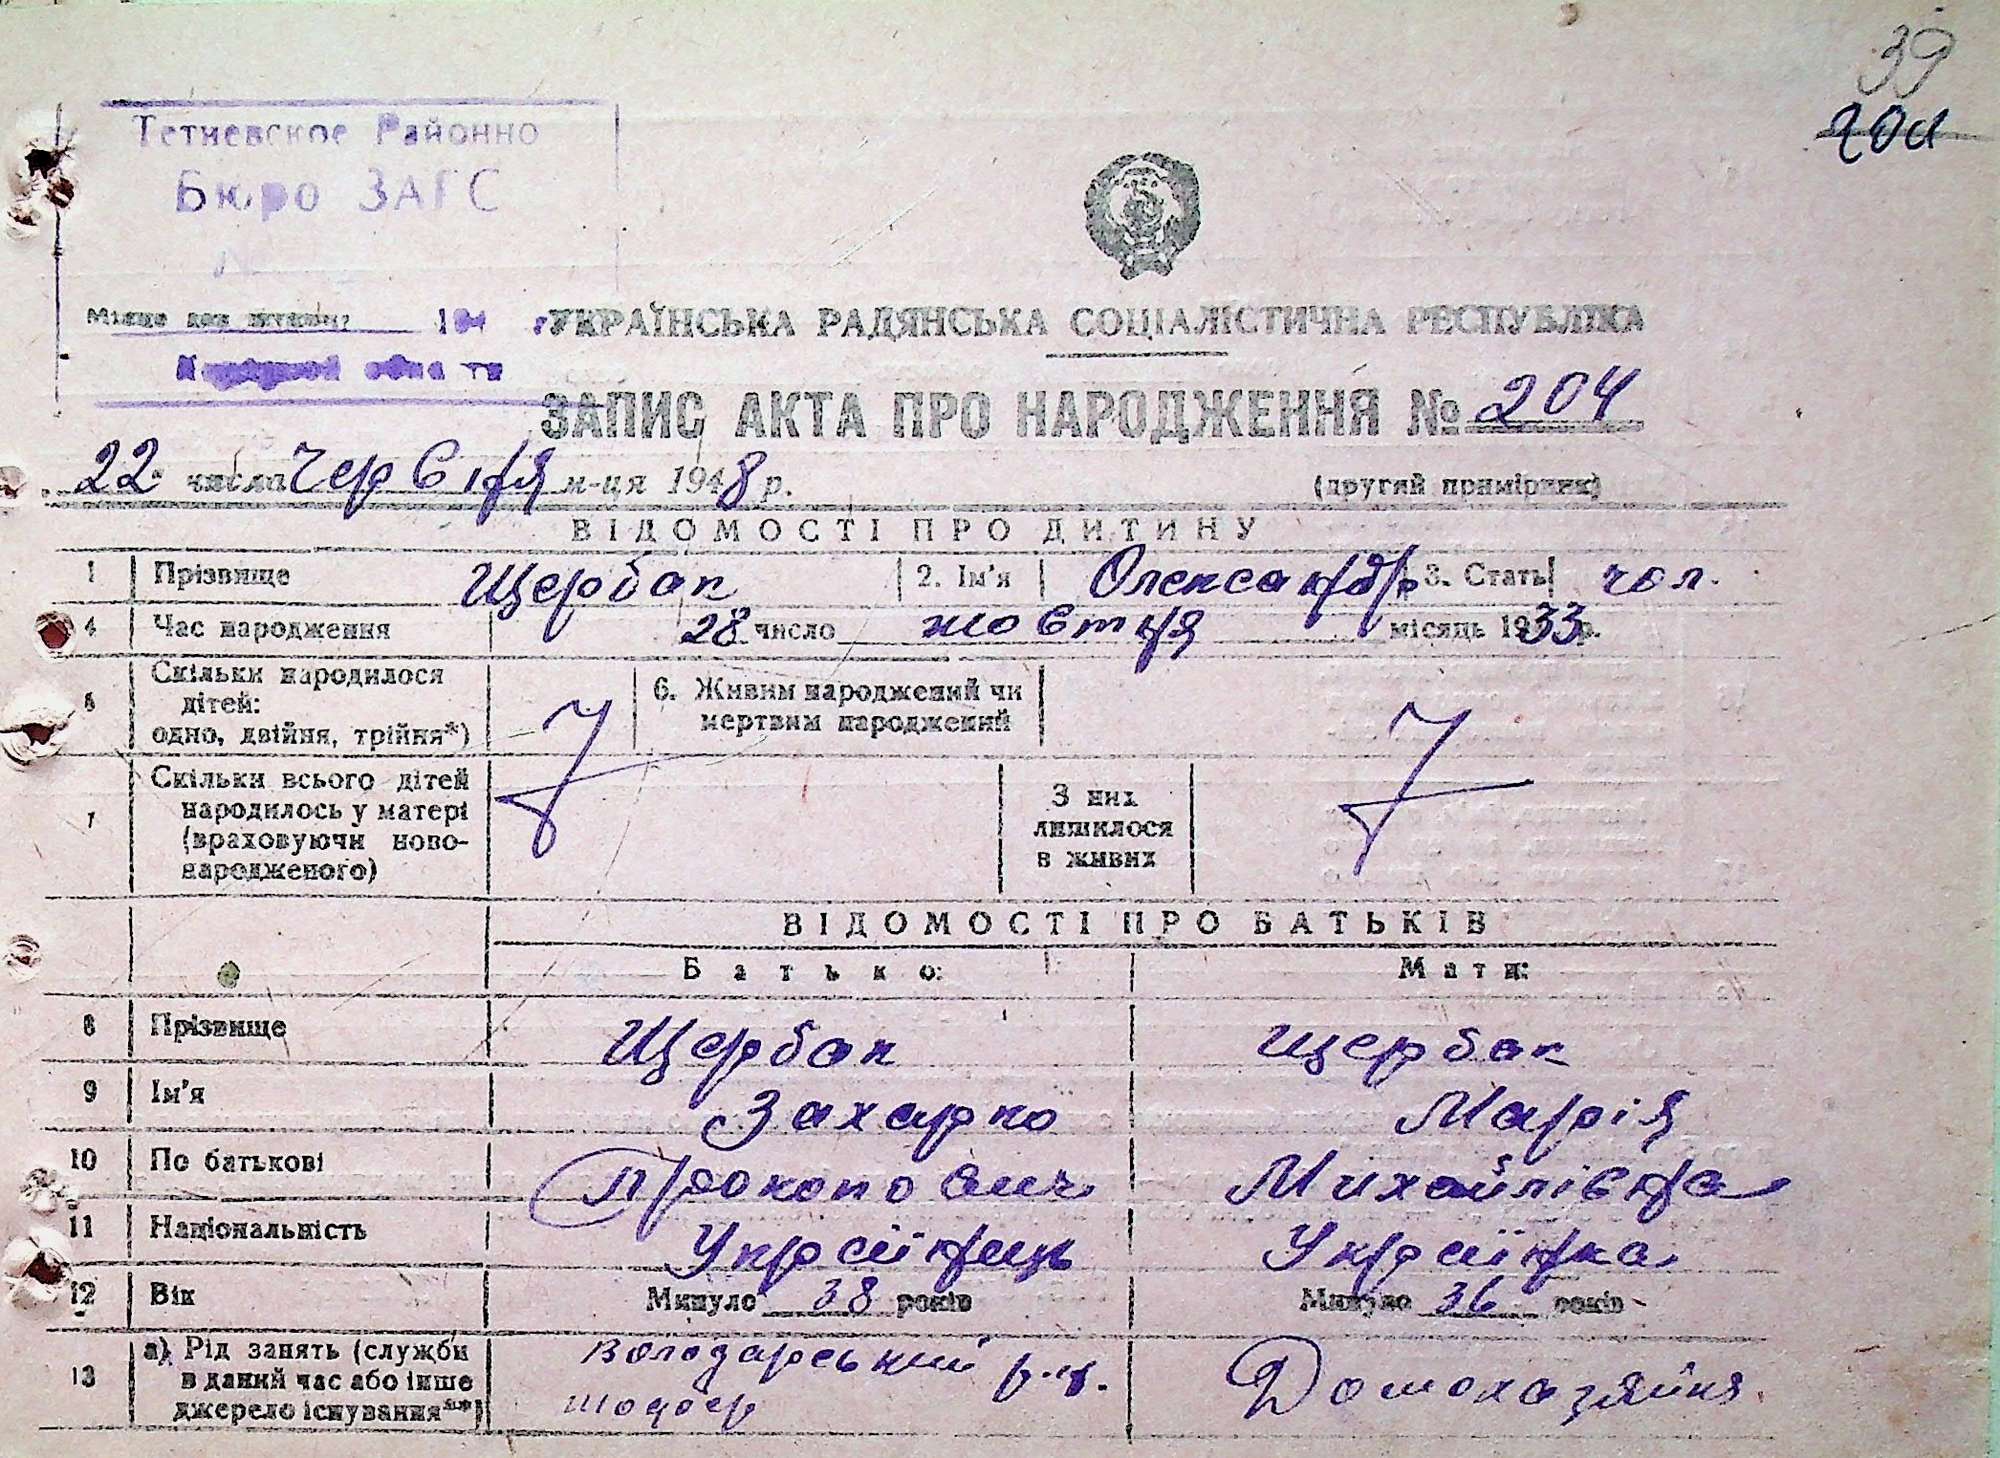 39
204
Тетиевское Районно
Бюро ЗАГС
№
194
области
УКРАЇНСЬКА РАДЯНСЬКА СОЦІАЛІСТИЧНА РЕСПУБЛІКА
ЗАПИС АКТА ПРО НАРОДЖЕННЯ № 204
22 числа Червня м-ця 1948 р. (другий примірник)
ВІДОМОСТІ ПРО ДИТИНУ
1 Прізвище Щербак 2. Ім'я Олександр 3. Стать чол.
4 Час народження 28 число жовтня місяць 1933 р.
5 Скільки народилося 6. Живим народжений чи
дітей: мертвим народжений
одно, двійня, трійня*)
7 Скільки всього дітей З них
народилось у матері лишилося
(враховуючи ново- в живих
народженого)
ВІДОМОСТІ ПРО БАТЬКІВ
Батько: Мати:
8 Прізвище Щербак Щербак
9 Ім'я Захарко Марія
10 По батькові Прокопович Михайлівна
11 Національність Українець Українка
12 Вік Минуло 38 років Минуло 36 років
13 а) Рід занять (служби Володарський р-н. Домохазяйка
в даний час або інше
джерело існування**)